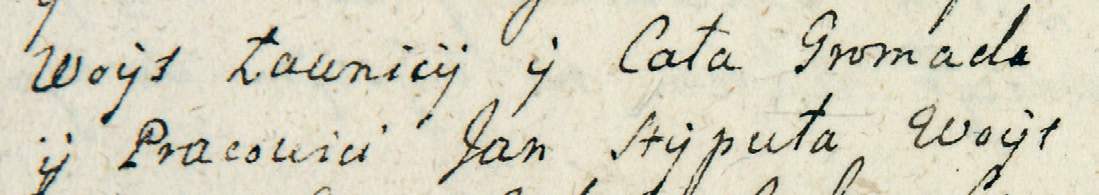 Woÿt Ławniciÿ ÿ Cała Gromada
ÿ Pracowici Jan Stÿputa Woÿt